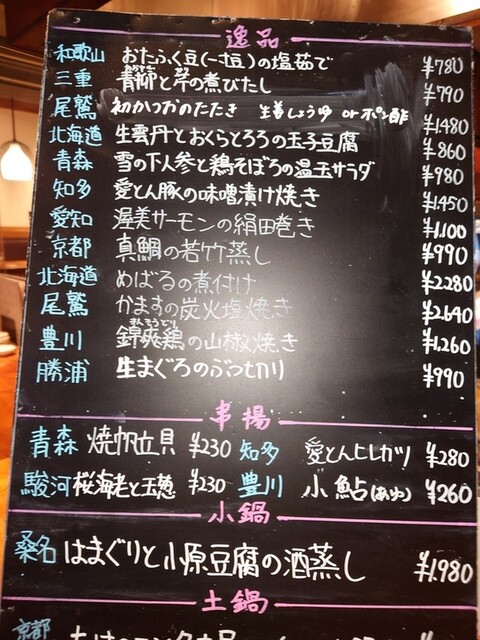 逸品
和歌山 おたふく豆(一寸豆)の塩茹で ¥780
三重 青柳と芹の煮びたし ¥790
尾鷲 初かつおのたたき 生姜しょうゆ or ポン酢 ¥1,480
北海道 生雲丹とおくらとろろの玉子豆腐 ¥860
青森 雪の下人参と鶏そぼろの温玉サラダ ¥980
知多 愛とん豚の味噌漬け焼き ¥1,450
愛知 渥美サーモンの絹田巻き ¥1,100
京都 真鯛の若竹蒸し ¥990
北海道 めばるの煮付け ¥2,280
尾鷲 かますの炭火塩焼き ¥2,640
豊川 錦爽鶏の山椒焼き ¥1,260
勝浦 生まぐろのぶつ切り ¥990
串揚
青森 焼帆立貝 ¥230 知多 愛とんヒレカツ ¥280
駿河 桜海老と玉葱 ¥230 豊川 小鮎(あゆ) ¥260
小鍋
桑名 はまぐりと小原豆腐の酒蒸し ¥1,980
土鍋
京都